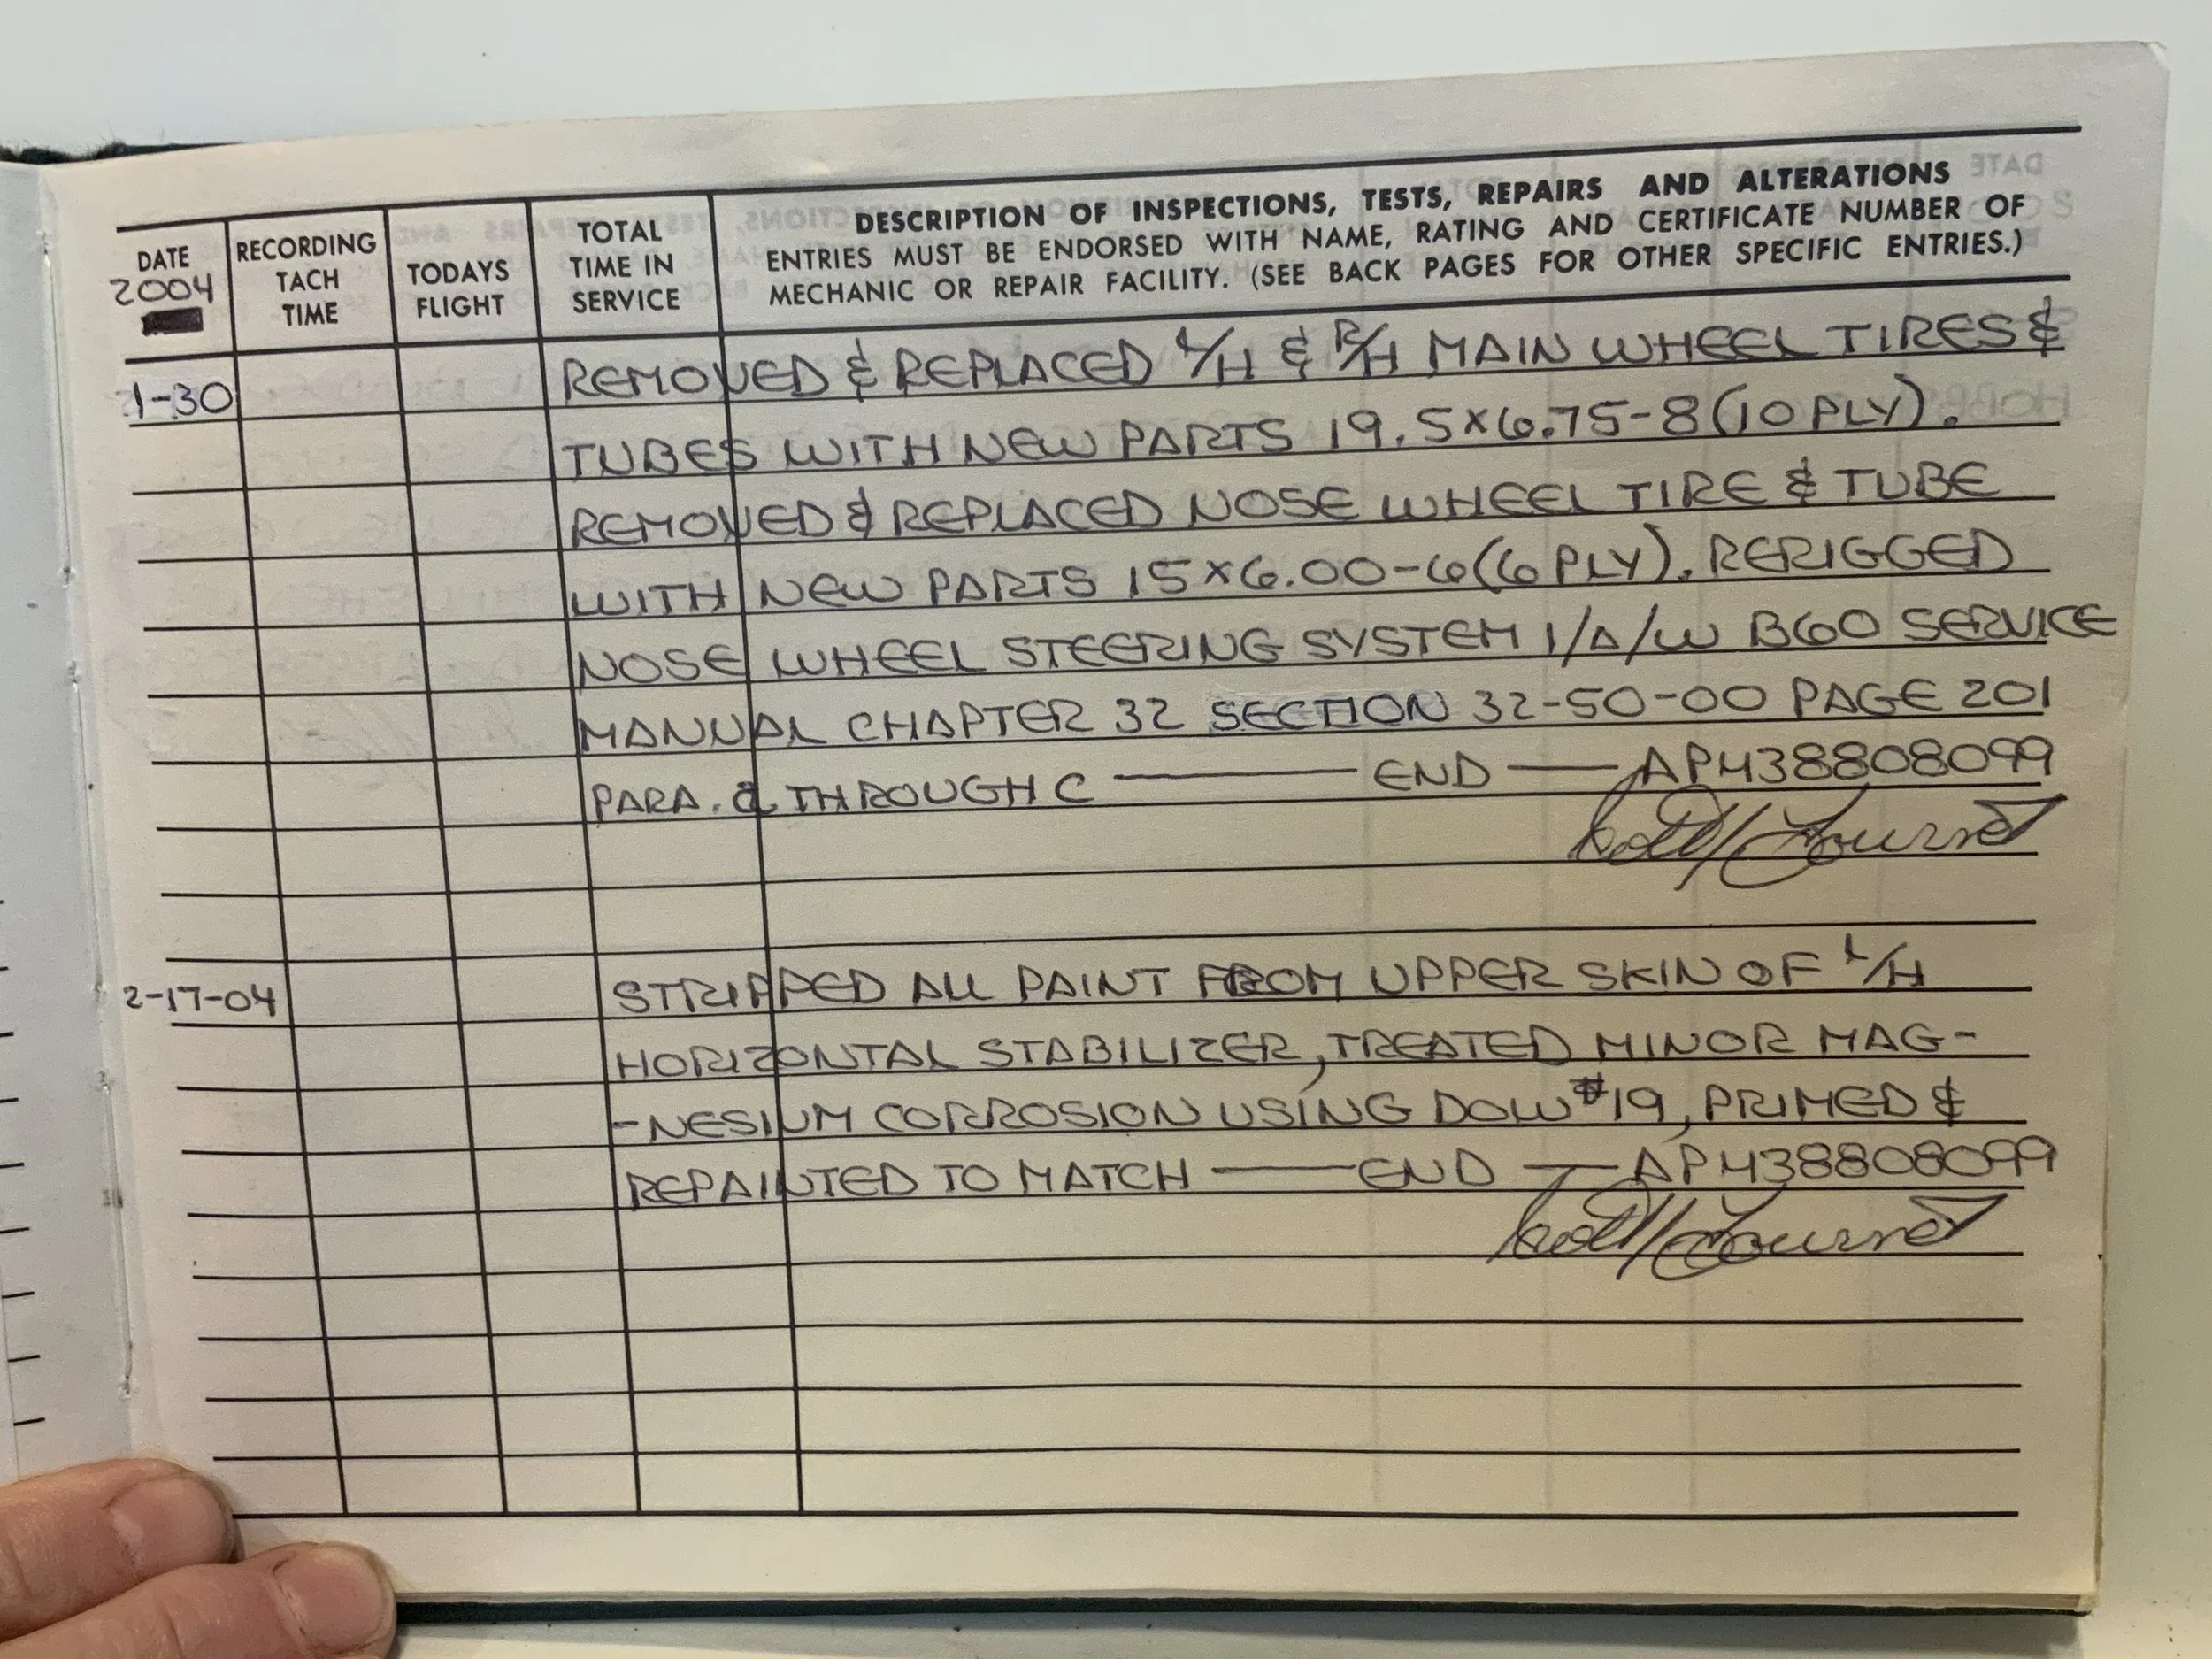 DATE
2004
RECORDING
TACH
TIME
TODAYS
FLIGHT
TOTAL
TIME IN
SERVICE
DESCRIPTION OF INSPECTIONS, TESTS, REPAIRS AND ALTERATIONS
ENTRIES MUST BE ENDORSED WITH NAME, RATING AND CERTIFICATE NUMBER OF
MECHANIC OR REPAIR FACILITY. (SEE BACK PAGES FOR OTHER SPECIFIC ENTRIES.)
1-30 REMOVED & REPLACED L/H & R/H MAIN WHEEL TIRES &
TUBES WITH NEW PARTS 19.5x6.75-8 (10 PLY).
REMOVED & REPLACED NOSE WHEEL TIRE & TUBE
WITH NEW PARTS 15x6.00-6 (6 PLY). RERIGGED
NOSE WHEEL STEERING SYSTEM I/A/W B60 SERVICE
MANUAL CHAPTER 32 SECTION 32-50-00 PAGE 201
PARA. a THROUGH C — END — AP438808099
2-17-04 STRIPPED ALL PAINT FROM UPPER SKIN OF L/H
HORIZONTAL STABILIZER, TREATED MINOR MAG-
-NESIUM CORROSION USING DOW #19, PRIMED &
REPAINTED TO MATCH — END — AP438808099